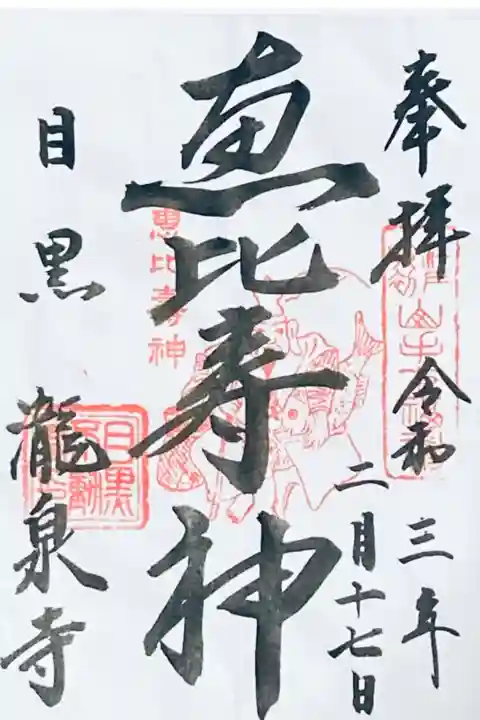 奉拝 令和三年
二月十七日
恵比寿神
恵比寿神
目黒 瀧泉寺